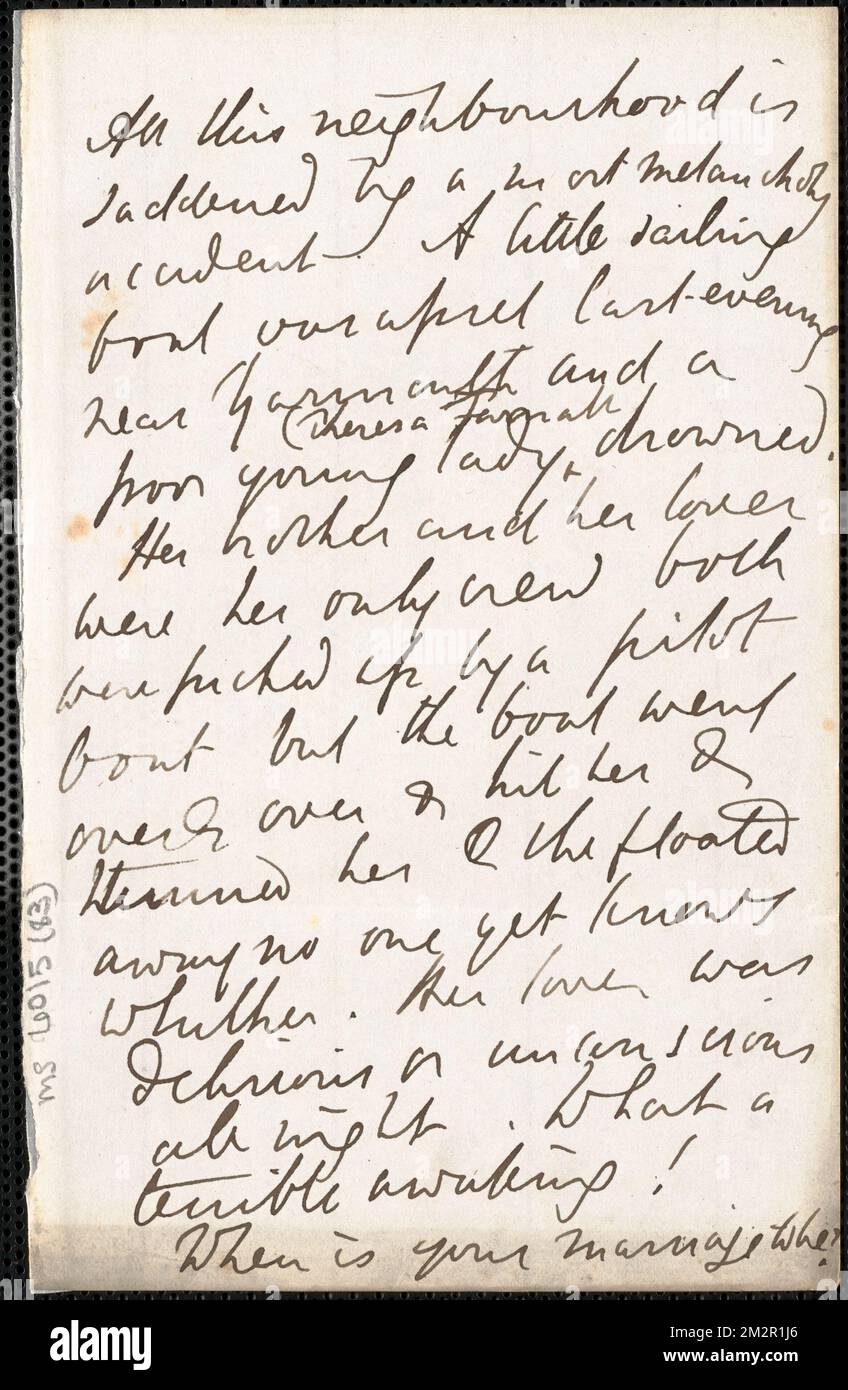 All this neighbourhood is
saddened by a most melancholy
accident. A little sailing
boat was upset last evening
near Yarmouth and a
(Theresa
poor young lady, drowned.
Her brother and her lover
were her only crew both
were picked up by a pilot
boat but the boat went
over & over & hit her &
stunned her & she floated
away no one yet knows
whither. Her lover was
delirious or unconscious
all night. What a
terrible awaking!
When is your marriage to be?
MS 6015 (83)
alamy
alamy
Image ID: 2M2R1J6
www.alamy.com